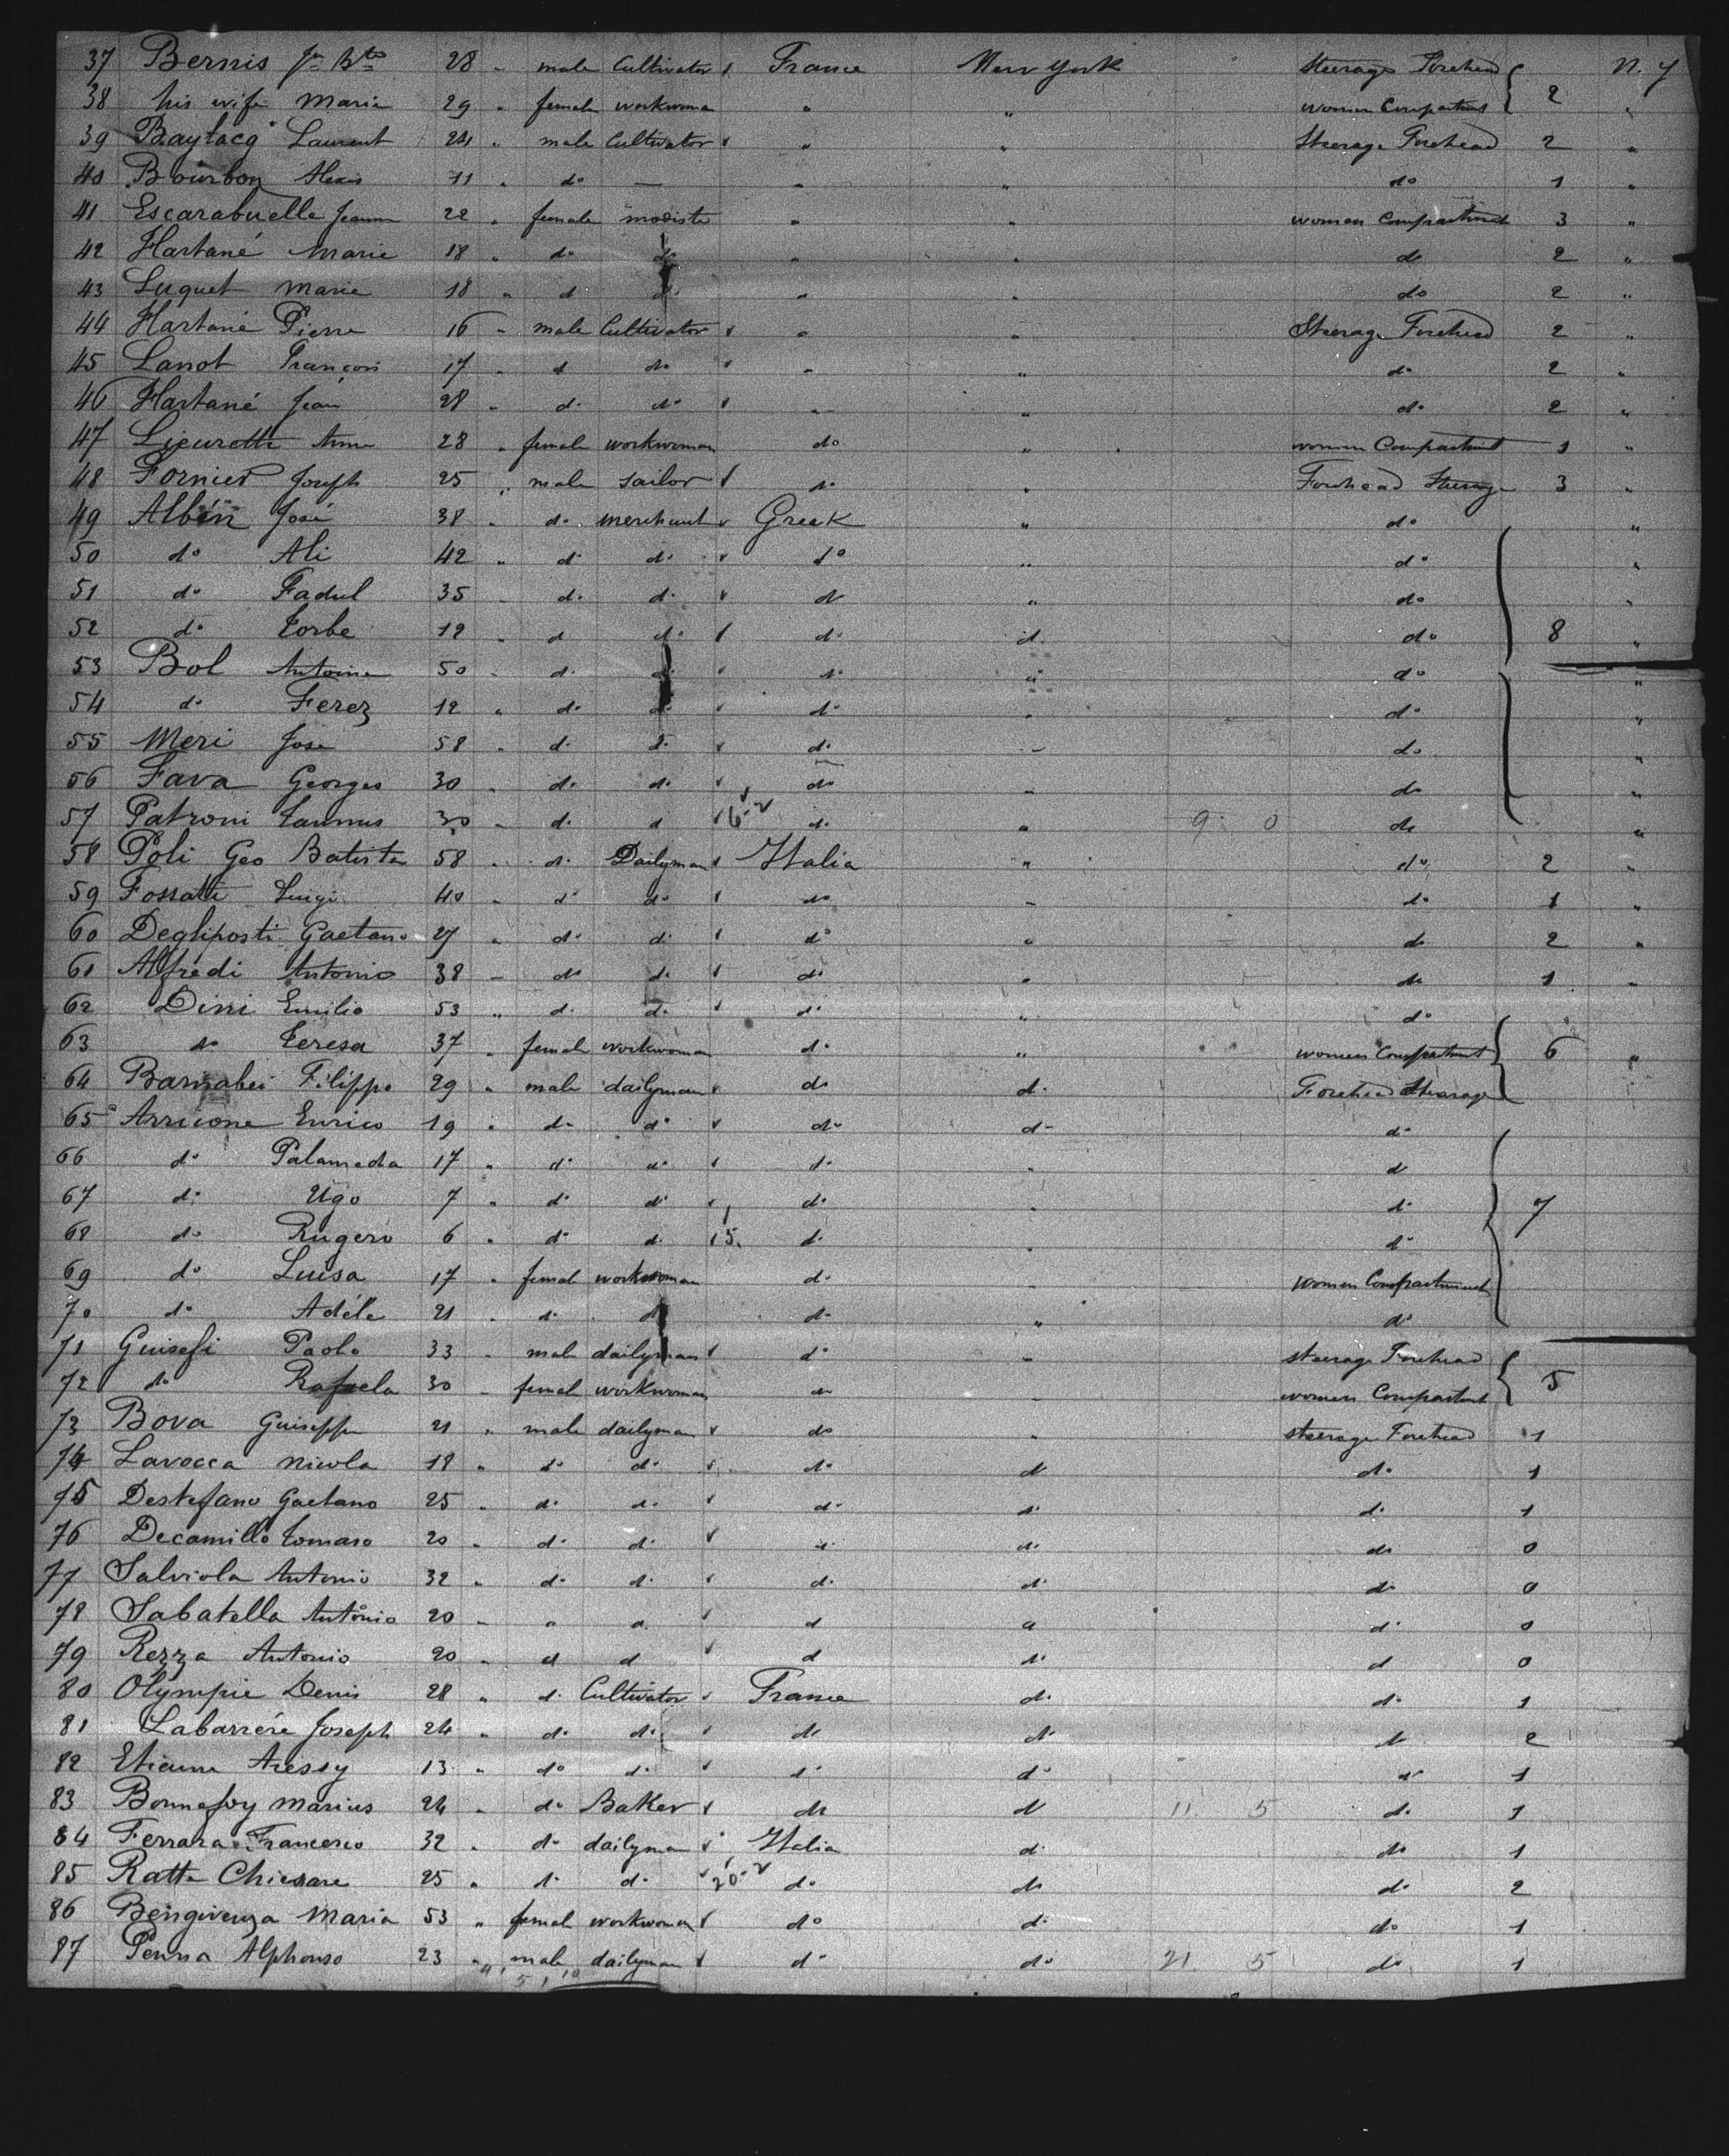 37 Bernis Jn Bte 28 " male Cultivator France New York Steerage Forehead 2 N. Y
38 his wife Marie 29 " female workwoman " " women Compartment "
39 Baylacq Laurent 24 " male Cultivator " " Steerage Forehead 2 "
40 Bourbon Alexis 11 " do — " " do 1 "
41 Escarabuelle Jeanne 22 " female modiste " " women Compartment 3 "
42 Hartané Marie 18 " do do " " do 2 "
43 Luquet Marie 18 " d do " " do 2 "
44 Hartané Pierre 16 " male Cultivator " " Steerage Forehead 2 "
45 Lanot François 17 " d do " " do 2 "
46 Hartané Jean 28 " do do " " do 2 "
47 28 " female workwoman do " women Compartment 1 "
48 Fornier Joseph 25 " male sailor do " Forehead Steerage 3 "
49 Albin José 38 " do merchant Greek " do "
50 do Ali 42 " do do do " do "
51 do Fadul 35 " do do do " do "
52 do Torbe 12 " d do do d. do 8 "
53 Bol Antoine 50 " do do do " do "
54 do Ferez 12 " do do do " do "
55 Meri Jose 58 " do do do " do "
56 Fava Georges 30 " do do do " do "
57 Patroni 30 " do d 6 do " 9 0 do "
58 Poli Geo Batista 58 " do Dailyman Italia " do 2 "
59 Fossatti Luigi 40 " do do do " do 1 "
60 Degliposti Gaetano 27 " do do do " do 2 "
61 Alfredi Antonio 38 " do do do " do 1 "
62 Dini Emilio 53 " do do do " do
63 do Teresa 37 " female workwoman do " women Compartment 6 "
64 Barnabei Filippo 29 " male dailyman do do Forehead Steerage
65 Arricone Enrico 19 " do do do do do
66 do Palameda 17 " do do do " d
67 do Ugo 7 " do do do " do 7
68 do Rugero 6 " do do 15. do " do
69 do Luisa 17 " femal workwoman do " women Compartment
70 do Adéle 21 " do do do " do
71 Guisefi Paolo 33 " male dailyman do " steerage Forehead 5
72 do Rafaela 30 " femal workwoman do " women Compartment
73 Bova Guiseppe 21 " male dailyman do " steerage Forehead 1
74 Lavocca Nicola 18 " do do do d do 1
75 Destefano Gaetano 25 " do do do do do 1
76 Decamillo Tomaso 20 " do do do do do 0
77 Salviola Antonio 32 " do do do do do 0
78 Sabatella Antonio 20 " d d d d do 0
79 Rezza Antonio 20 " d d d do d 0
80 Olympie Denis 28 " do Cultivator France do do 1
81 Labarrére Joseph 24 " do do do do do 2
82 Etienne Aressy 13 " do do do do do 1
83 Bonnefoy Marius 24 " do Baker do do 11. 5 do 1
84 Ferrara Francesco 32 " do dailyman Italia do do 1
85 Ratta Chiesare 25 " do do 20 do do do 2
86 Bengivenga Maria 53 " female workwoman do do do 1
87 Penna Alphonso 23 " male dailyman do do 21. 5 do 1